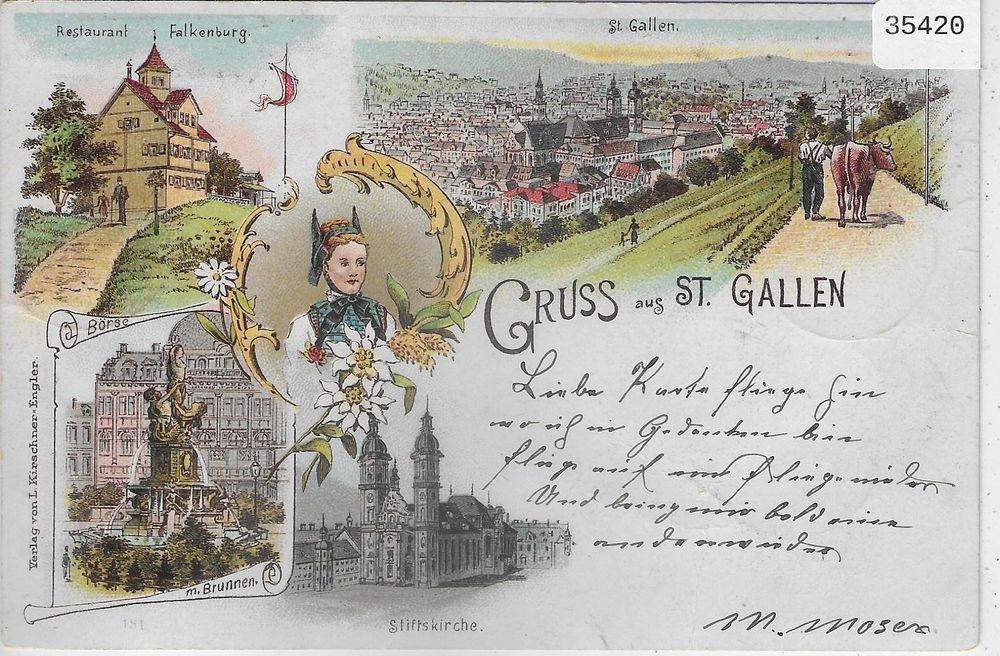 35420
Restaurant Falkenburg.
St. Gallen.
GRUSS aus ST. GALLEN
Börse
m. Brunnen.
Verlag von L. Kirschner-Engler
Stiftskirche.
151
Liebe Karte fliege hin
wo ich in Gedanken bin
flieg auf und flieg nieder
Und bring mir bald eine
andere wieder
M. Moser